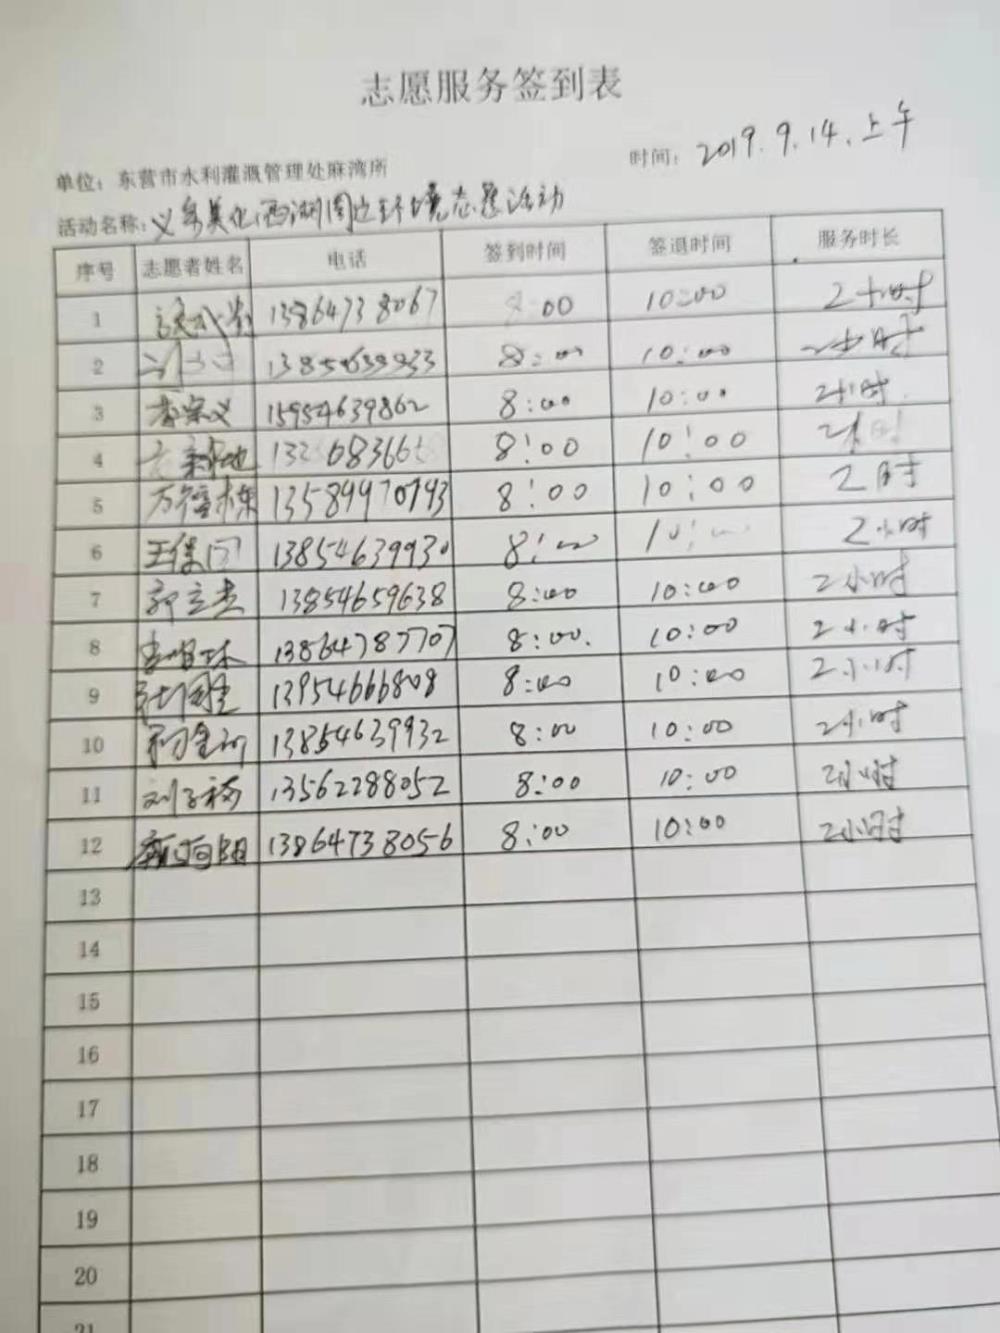 志愿服务签到表
单位：东营市水利灌溉管理处麻湾所 时间：2019.9.14.上午
活动名称：义务美化西湖周边环境志愿活动
序号 志愿者姓名 电话 签到时间 签退时间 服务时长
1 13864738067 8:00 10:00 2小时
2 8:00 10:00 2小时
3 李宗义 15954639862 8:00 10:00 2小时
4 8:00 10:00 2小时
5 13589970793 8:00 10:00 2时
6 王保 13854639930 8:00 10:00 2小时
7 郭立杰 13854659638 8:00 10:00 2小时
8 13864787707 8:00. 10:00 2小时
9 张国星 13954666808 8:00 10:00 2小时
10 13854639932 8:00 10:00 2小时
11 刘 13562288052 8:00 10:00 2小时
12 向阳 13864738056 8:00 10:00 2小时
13
14
15
16
17
18
19
20
21